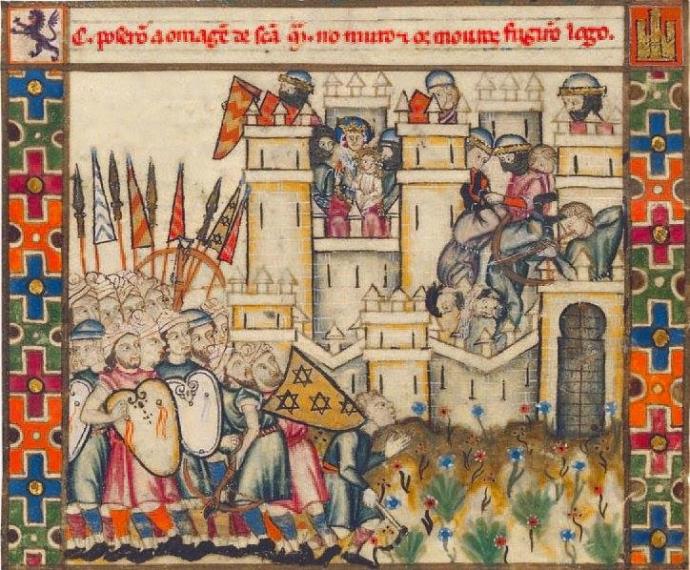 C. poserõ a omagẽ de scã mª. no muro ⁊ os mouros fugirõ logo.